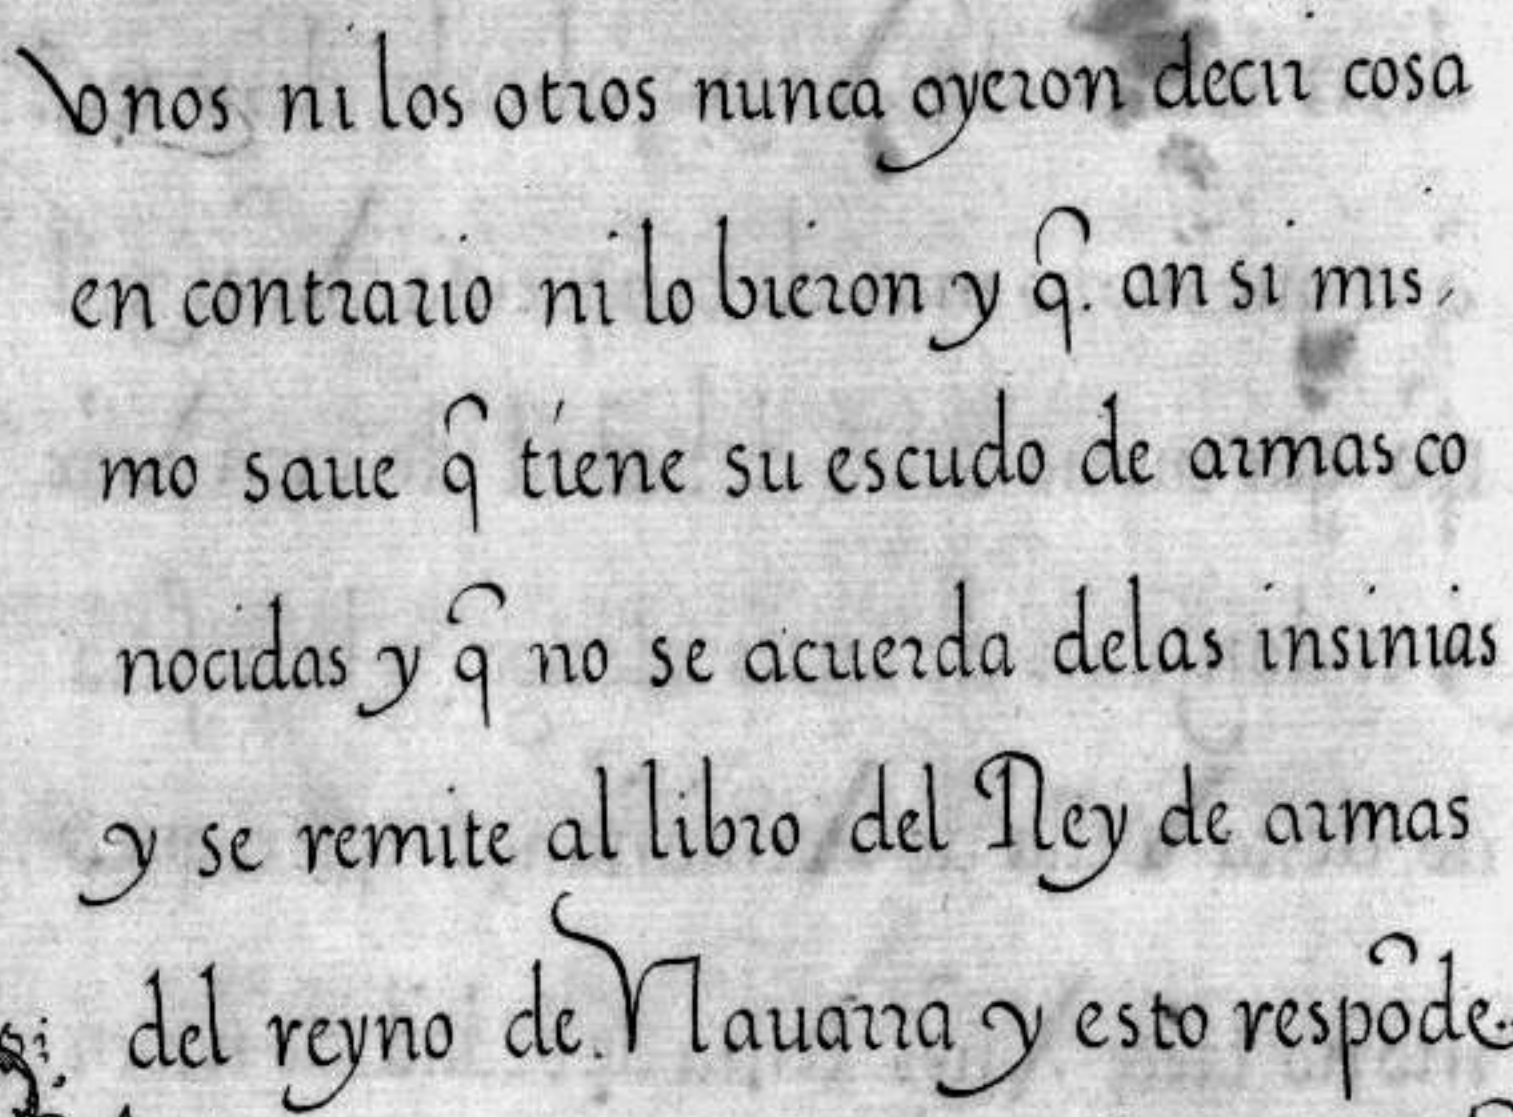 vnos ni los otros nunca oyeron decir cosa
en contrario ni lo bieron y q̂. ansi mis,
mo saue q̂ tiene su escudo de armas co
nocidas y q̂ no se acuerda delas insinias
y se remite al libro del Rey de armas
del reyno de. Nauarra y esto respôde.